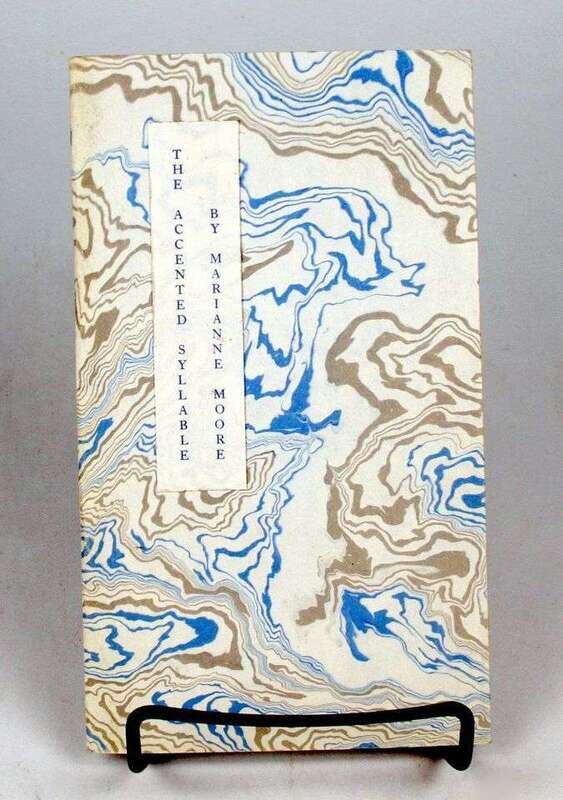 THE ACCENTED SYLLABLE
BY MARIANNE MOORE